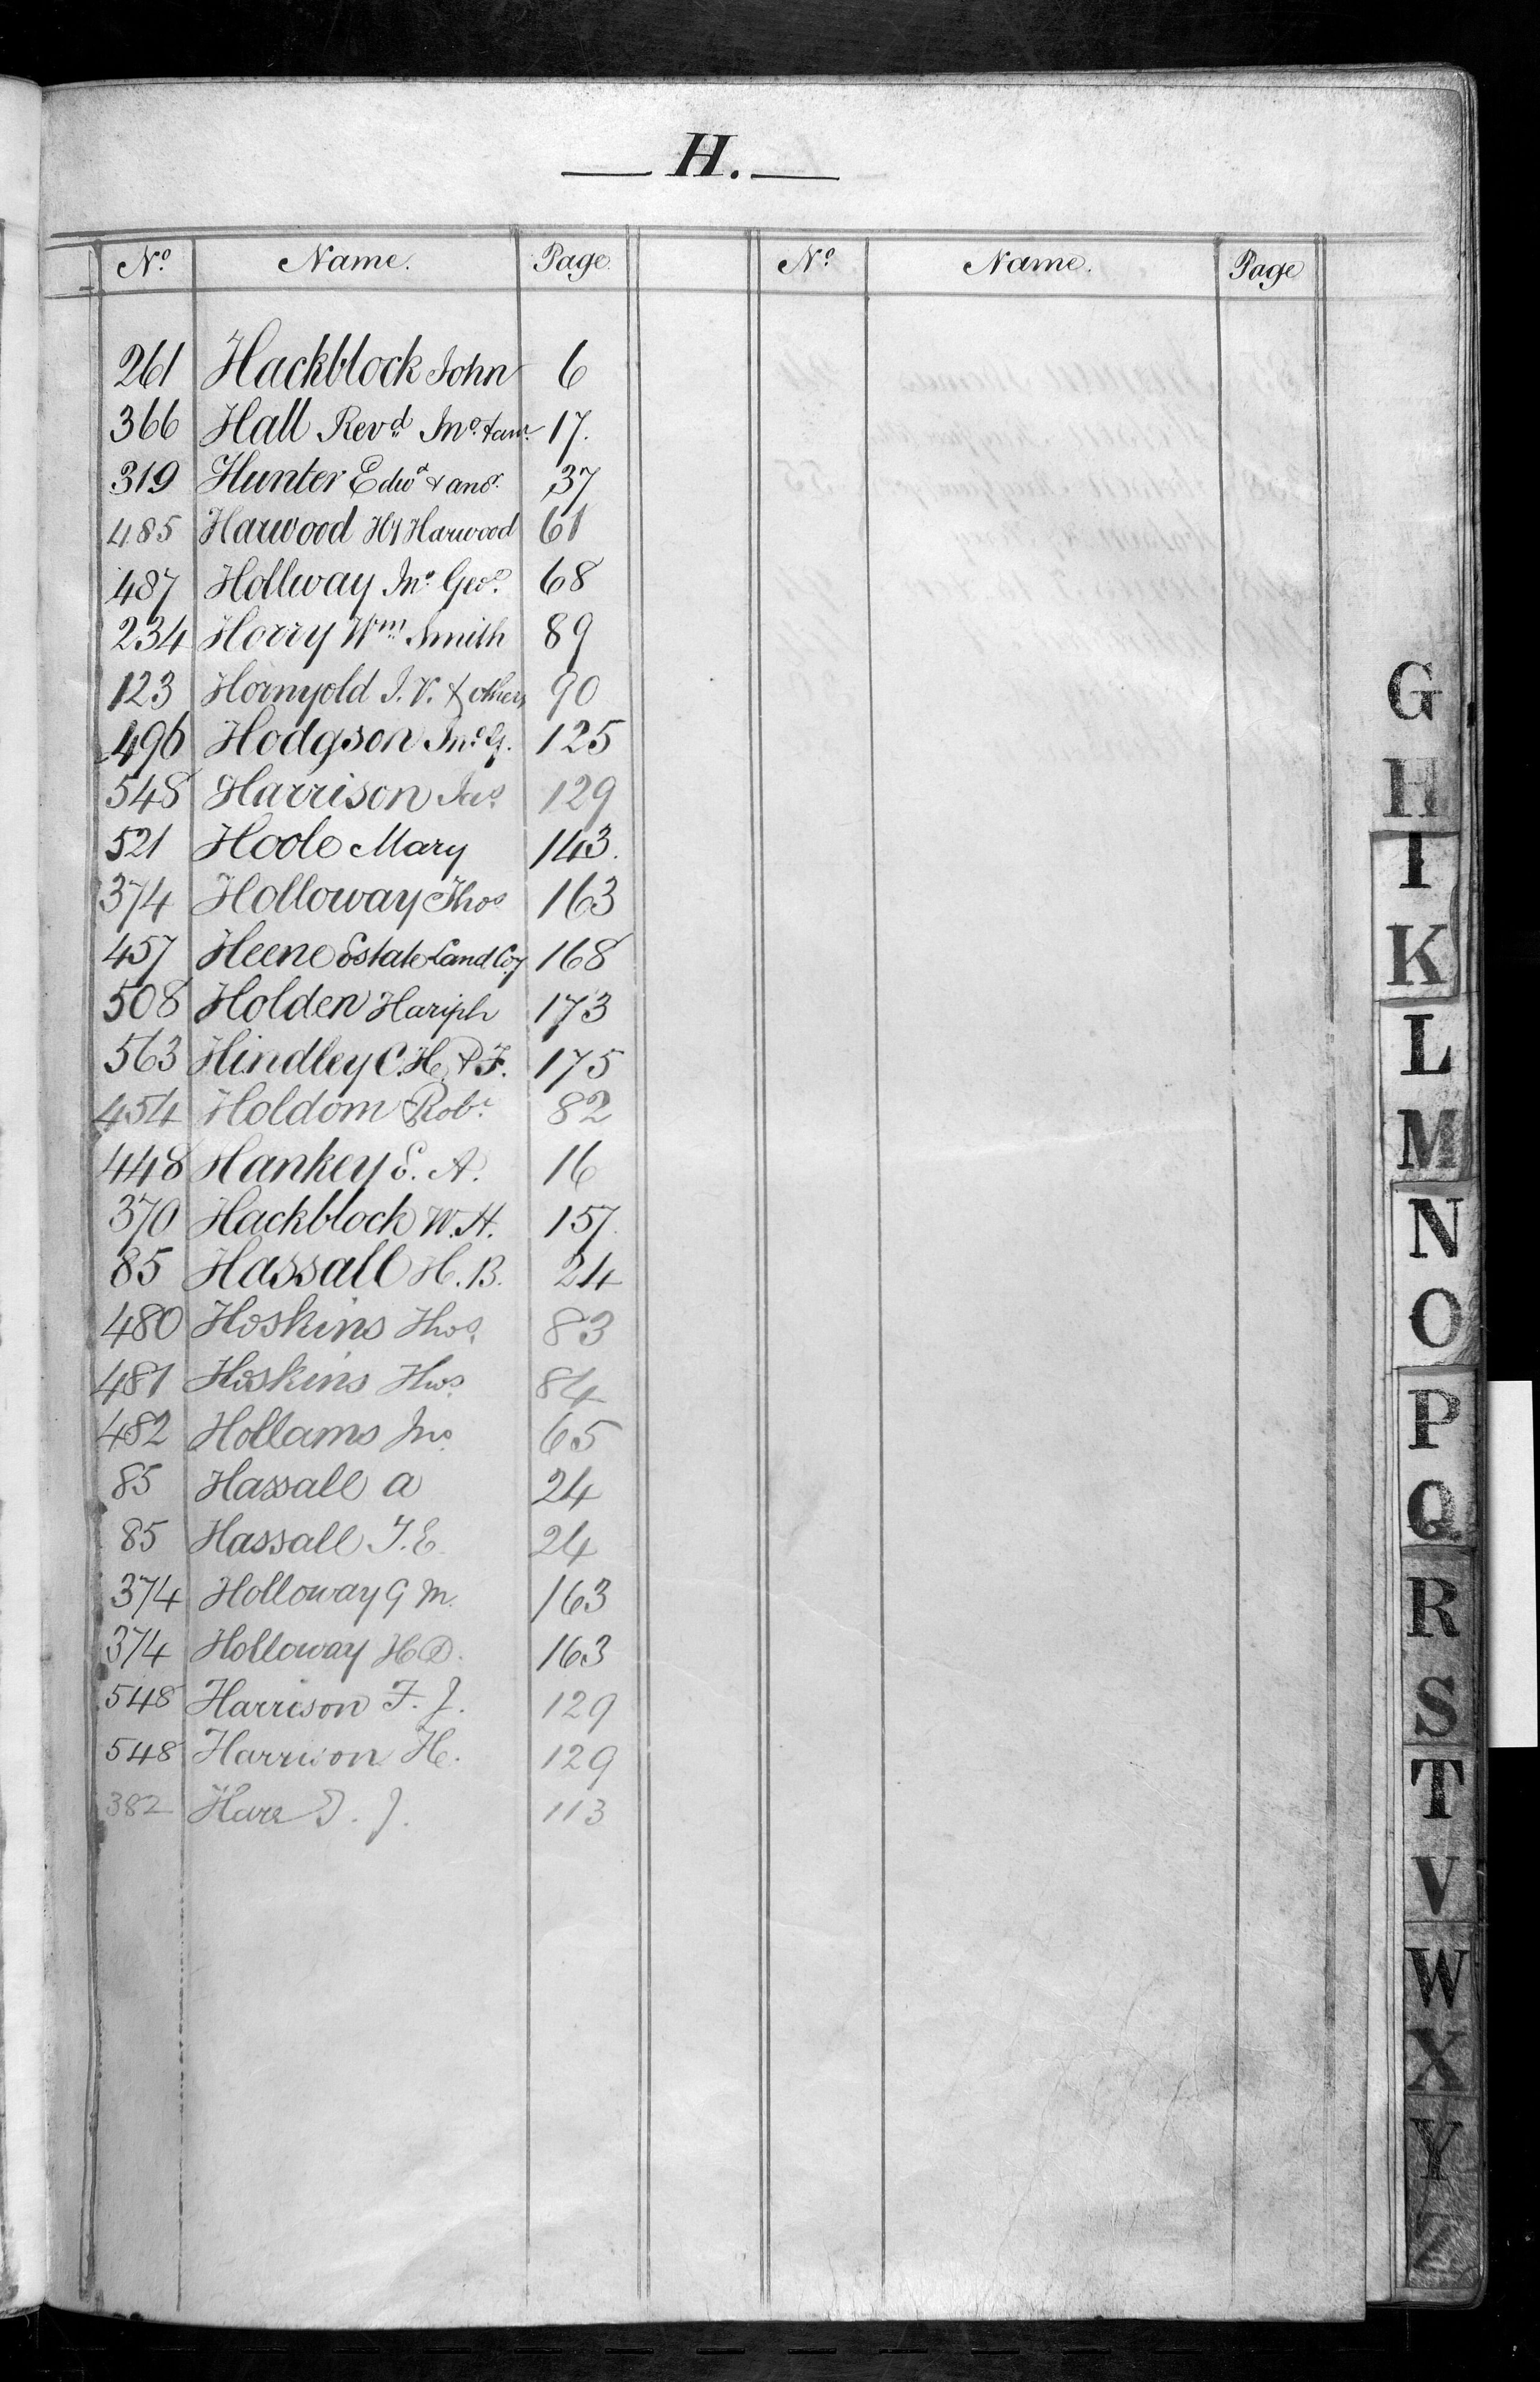 H.
Nº Name. Page Nº Name. Page
261 Hackblock John 6
366 Hall Revd Jno & anr 17.
319 Hunter Edwd & anor 37
485 Harwood Hy Harwood 61
487 Hollway Jno Geo. 68
234 Horry Wm Smith 89
123 Hornyold J. V. & others 90
496 Hodgson Jno G. 125
548 Harrison Jas 129
521 Hoole Mary 143.
374 Holloway Thos 163
457 Heene Estate Land Coy 168
508 Holden Hariph 173
563 Hindley C. H. & F. 175
454 Holdom Robt 82
448 Hankey E. A. 16
370 Hackblock W. H. 157.
85 Hassall H. B. 24
480 Hoskins Thos. 83
481 Hoskins Thos. 84
482 Hollams Jno. 65
85 Hassall A 24
85 Hassall T. E. 24
374 Holloway G M. 163
374 Holloway H D. 163
548 Harrison F. J. 129
548 Harrison H. 129
382 Hare T. J. 113
G
H
I
K
L
M
N
O
P
Q
R
S
T
V
W
X
Y
Z